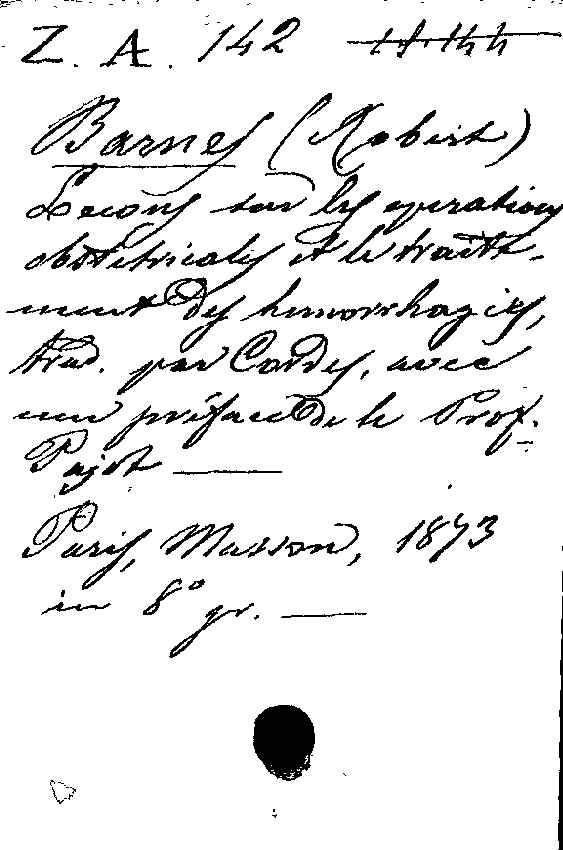 Z. A. 142
Barnes (Robert)
Leçons sur les operations
obstetricales et le traite-
ment des hemorrhagies,
trad. par Cordes, avec
une préface de le Prof.
Pajot
Paris, Masson, 1873
in 8° gr.